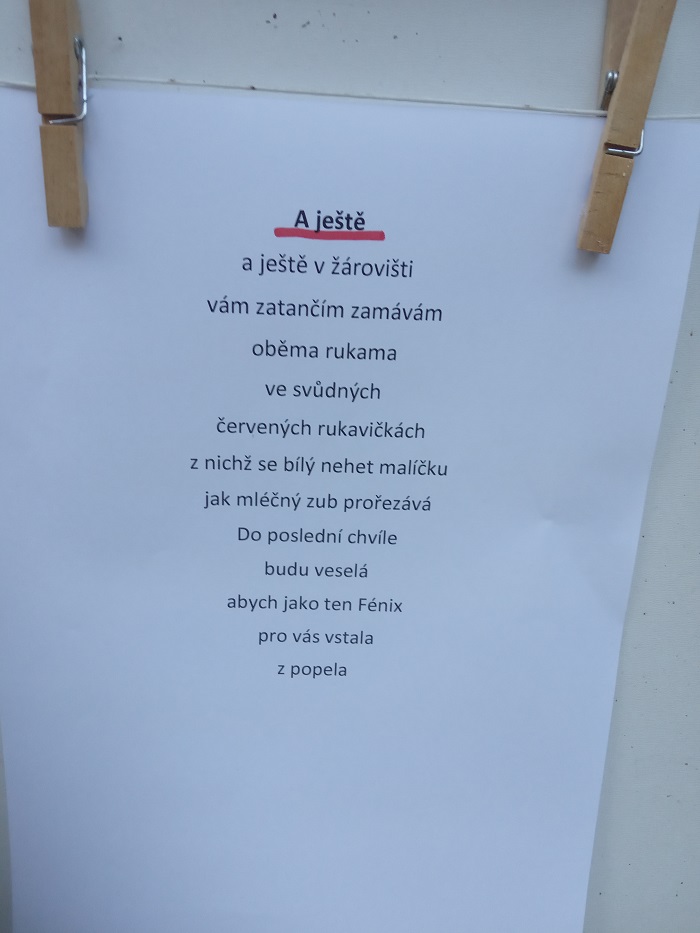 A ještě
a ještě v žárovišti
vám zatančím zamávám
oběma rukama
ve svůdných
červených rukavičkách
z nichž se bílý nehet malíčku
jak mléčný zub prořezává
Do poslední chvíle
budu veselá
abych jako ten Fénix
pro vás vstala
z popela